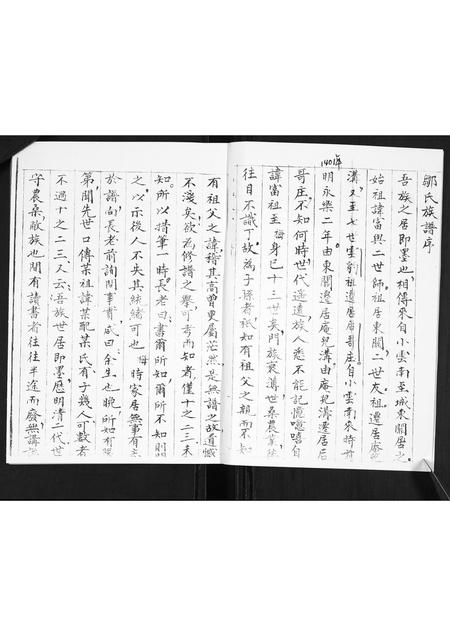 鄒氏族譜序
吾族之居即墨也相傳來自小雲南至城東關居之
始祖諱富與二世師祖居東關二世友祖遷居庵兒
溝又至七世雲豹祖遷居后哥庄自小雲南來時前
1401年
明永樂二年由東關遷居庵兒溝由庵兒溝遷居后
哥庄不知何時世代遥遠族人悉不能記憶噫嘻自
諱富祖至梅身已十三世矣門族衰溝世桑農業
往目不識丁故為子孫者祇知有祖父之親而不知
有祖父之諱稽其高曾更屬茫然是無譜之故遺憾
不淺矣欲為修譜之舉可考而知者僅十之二三未
知所以措筆一時長老曰書爾所知爾所不知則
之以示後人不失其統緒可也梅時家居無事有志
於譜向長老前詢問事實咸曰余生也晚所知有限
第聞先世口傳某祖諱某配某氏有子幾人可數者
不過十之二三人云吾族世居即墨歷明清二代世
守農桑敝族也間有讀書者往往半途而廢無講